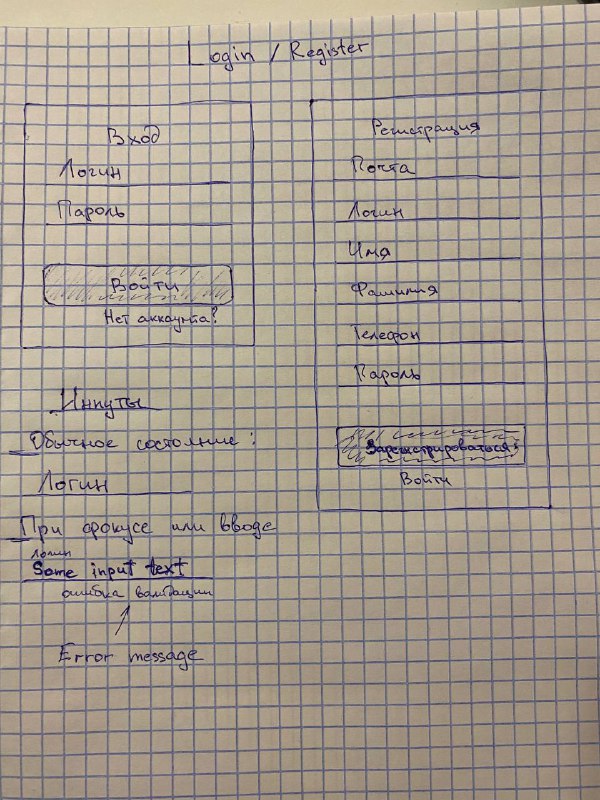 Login / Register
Вход
Логин
Пароль
Войти
Нет аккаунта?
Регистрация
Почта
Логин
Имя
Фамилия
Телефон
Пароль
Зарегистрироваться
Войти
Инпуты
Обычное состояние:
Логин
При фокусе или вводе
логин
Some input text
ошибка валидации
Error message